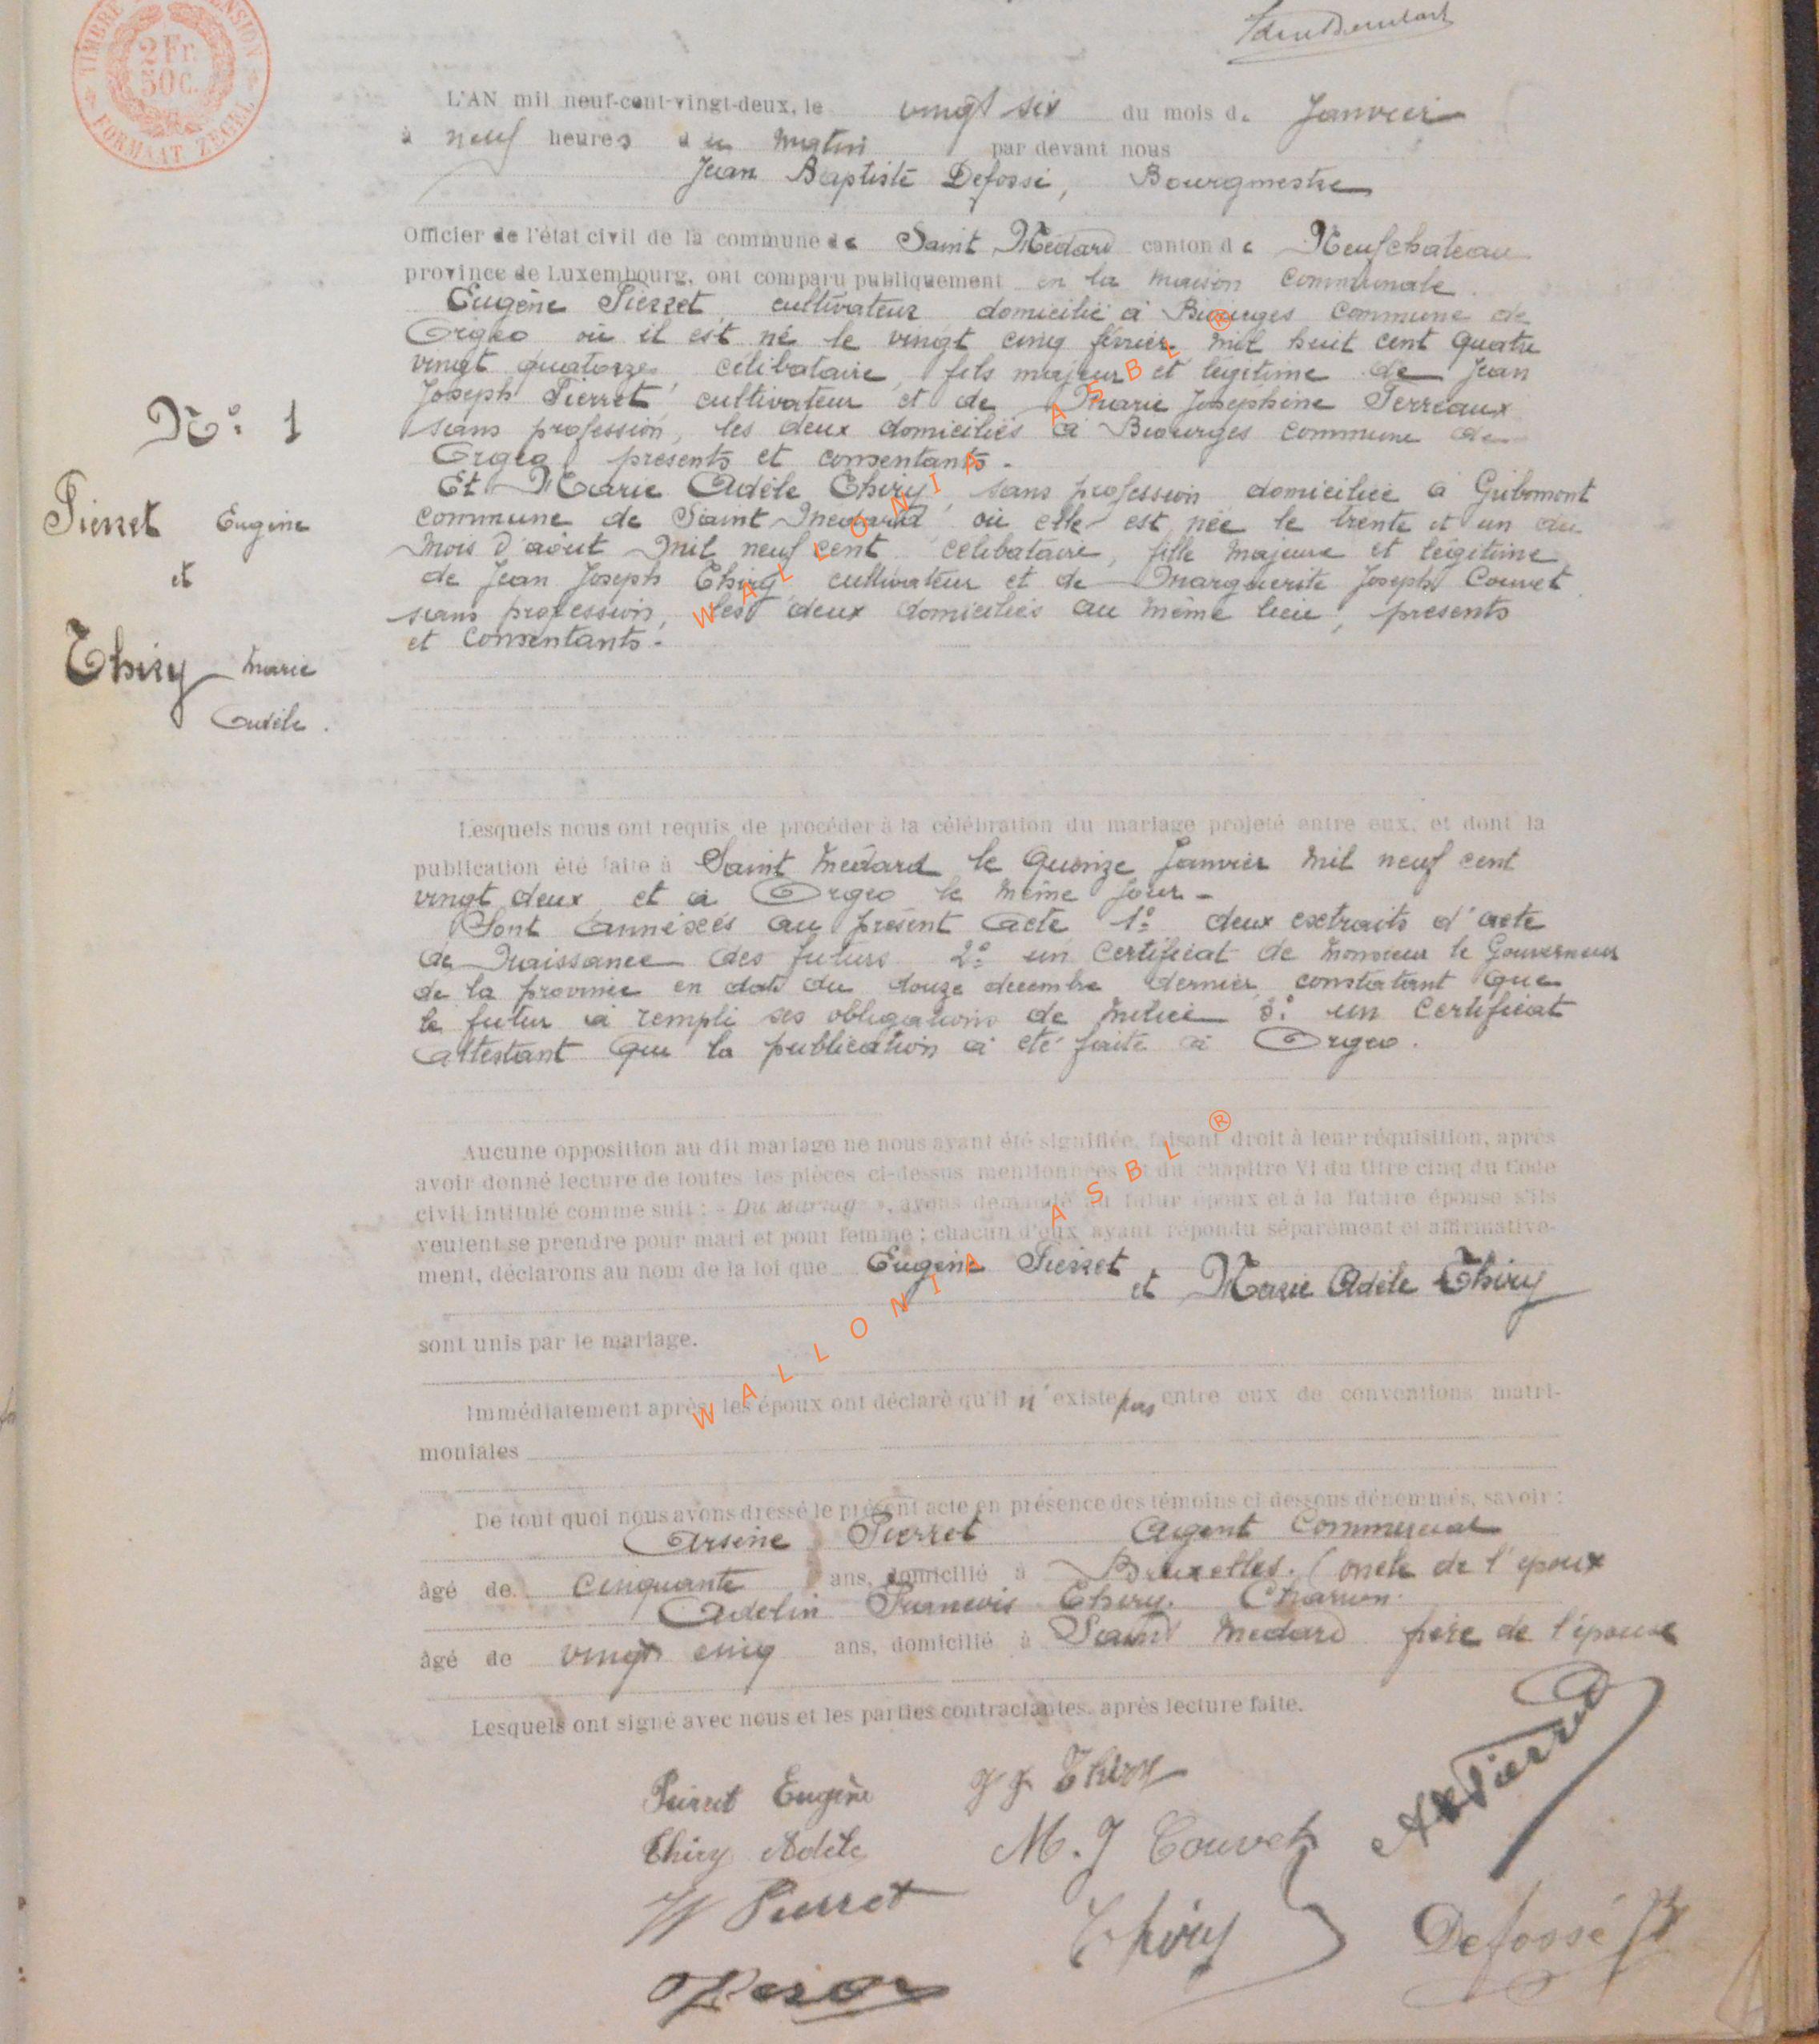 TIMBRE DIMENSION
2 Fr.
50 C.
FORMAAT ZEGEL
L'AN mil neuf-cent-vingt-deux, le vingt six du mois de Janvier
à neuf heures du matin par devant nous
Jean Baptiste Defossé, Bourgmestre
Officier de l'état civil de la commune de Saint Médard canton de Neufchateau
province de Luxembourg, ont comparu publiquement en la maison communale.
Eugène Pierret, cultivateur domicilié à Biourges commune de
Orgeo où il est né le vingt cinq février mil huit cent quatre
vingt quatorze, célibataire, fils majeur et légitime de Jean
Joseph Pierret cultivateur et de Marie Josephine Perreaux
sans profession, les deux domiciliés à Biourges commune de
Orgeo presents et consentants.-
Et Marie Adèle Thiry, sans profession domiciliée à Gribomont
commune de Saint Medard où elle est née le trente et un du
mois d'août mil neuf cent célibataire, fille majeure et légitime
de Jean Joseph Thiry cultivateur et de Marguerite Joseph Couvet
sans profession, les deux domiciliés au même lieu, presents
et consentants.-
N° 1
Pierret Eugène
et
Thiry Marie
Adèle.
Lesquels nous ont requis de procéder à la célébration du mariage projeté entre eux, et dont la
publication été faite à Saint Médard le quinze Janvier mil neuf cent
vingt deux et à Orgeo le même jour.-
Sont annéxés au présent acte 1° deux extraits d'acte
de Naissance des futurs 2° un certificat de Monsieur le Gouverneur
de la province en date du douze decembre dernier constatant que
le futur a rempli ses obligations de milice 3° un certificat
attestant que la publication a été faite à Orgeo.
Aucune opposition au dit mariage ne nous ayant été signifiée, faisant droit à leur réquisition, après
avoir donné lecture de toutes les pièces ci-dessus mentionnées et du chapitre VI du titre cinq du Code
civil intitulé comme suit : « Du Mariage », avons demandé au futur époux et à la future épouse s'ils
veulent se prendre pour mari et pour femme ; chacun d'eux ayant répondu séparément et affirmative-
ment, déclarons au nom de la loi que Eugène Pierret et Marie Adèle Thiry
sont unis par le mariage.
Immédiatement après, les époux ont déclaré qu'il n'existe pas entre eux de conventions matri-
moniales
De tout quoi nous avons dressé le présent acte en présence des témoins ci-dessous dénommés, savoir :
Arsène Pierret Agent Commercial
âgé de cinquante ans, domicilié à Bruxelles. (oncle de l'époux
Adelin Francois Thiry. Charron.
âgé de vingt cinq ans, domicilié à Saint Medard frère de l'épouse
Lesquels ont signé avec nous et les parties contractantes, après lecture faite.
Pierret Eugène
J J Thiry
Thiry Adèle
M. J Couvet
A Pierret
JJ Pierret
Thiry
Defossé JB
WALLONIA ASBL ®
WALLONIA ASBL ®